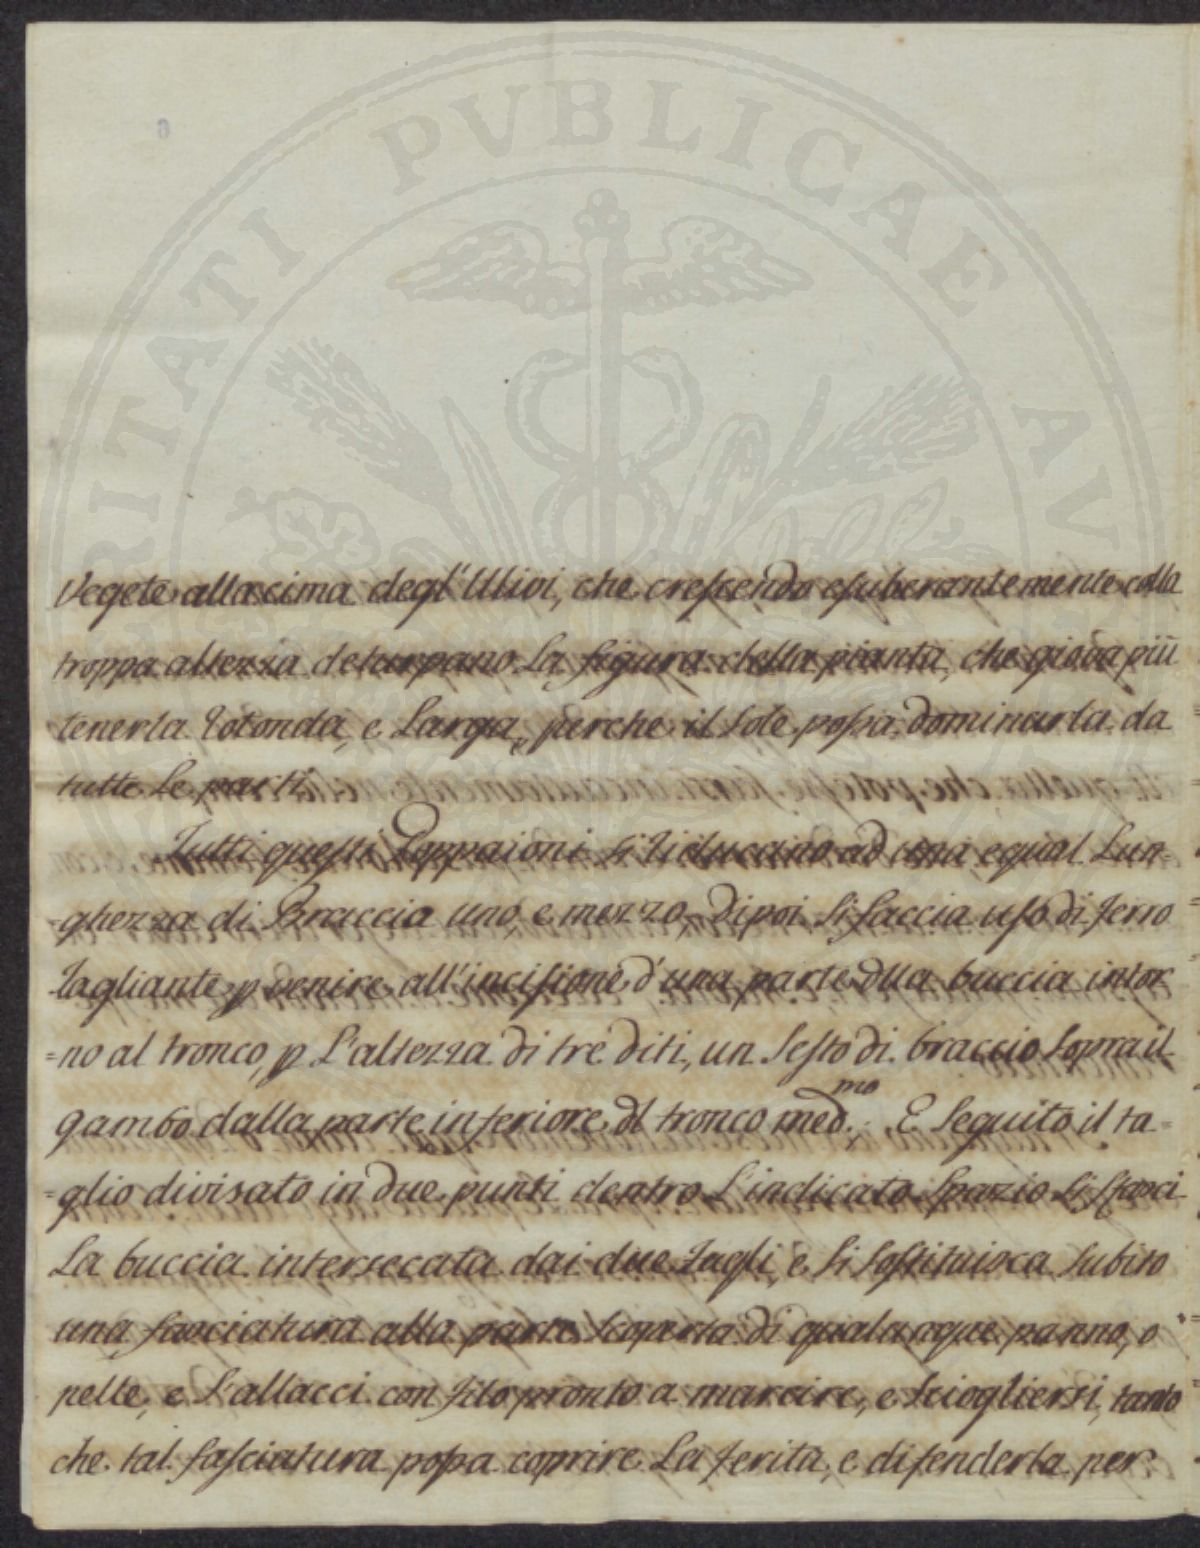 PVBLICAE
RITATI
AV
6
Vegete alla cima degl'Ulivi, che crescendo esuberantemente colla
troppa altezza deturpano la figura della pianta, che giova più
tenerla rotonda, e larga, perche il Sole possa dominarla da
tutte le parti.
Tutti questi Poppaioni si riducano ad una equal Lun-
=ghezza di Braccia uno, e mezzo, dipoi si faccia uso di ferro
tagliante p venire all'incisione d'una parte dlla buccia intor
=no al tronco, p l'altezza di tre diti, un Sesto di braccio sopra il
gambo dalla parte inferiore dl tronco med.mo E seguito il ta=
=glio divisato in due punti dentro l'indicato spazio si stacci
la buccia intersecata dai due tagli, e si sostituisca subito
una fasciatura alla parte scoperta di qualunque panno, o
pelle, e l'allacci con filo pronto a marcire, e sciogliersi, tanto
che tal fasciatura possa coprire la ferita, e difenderla per